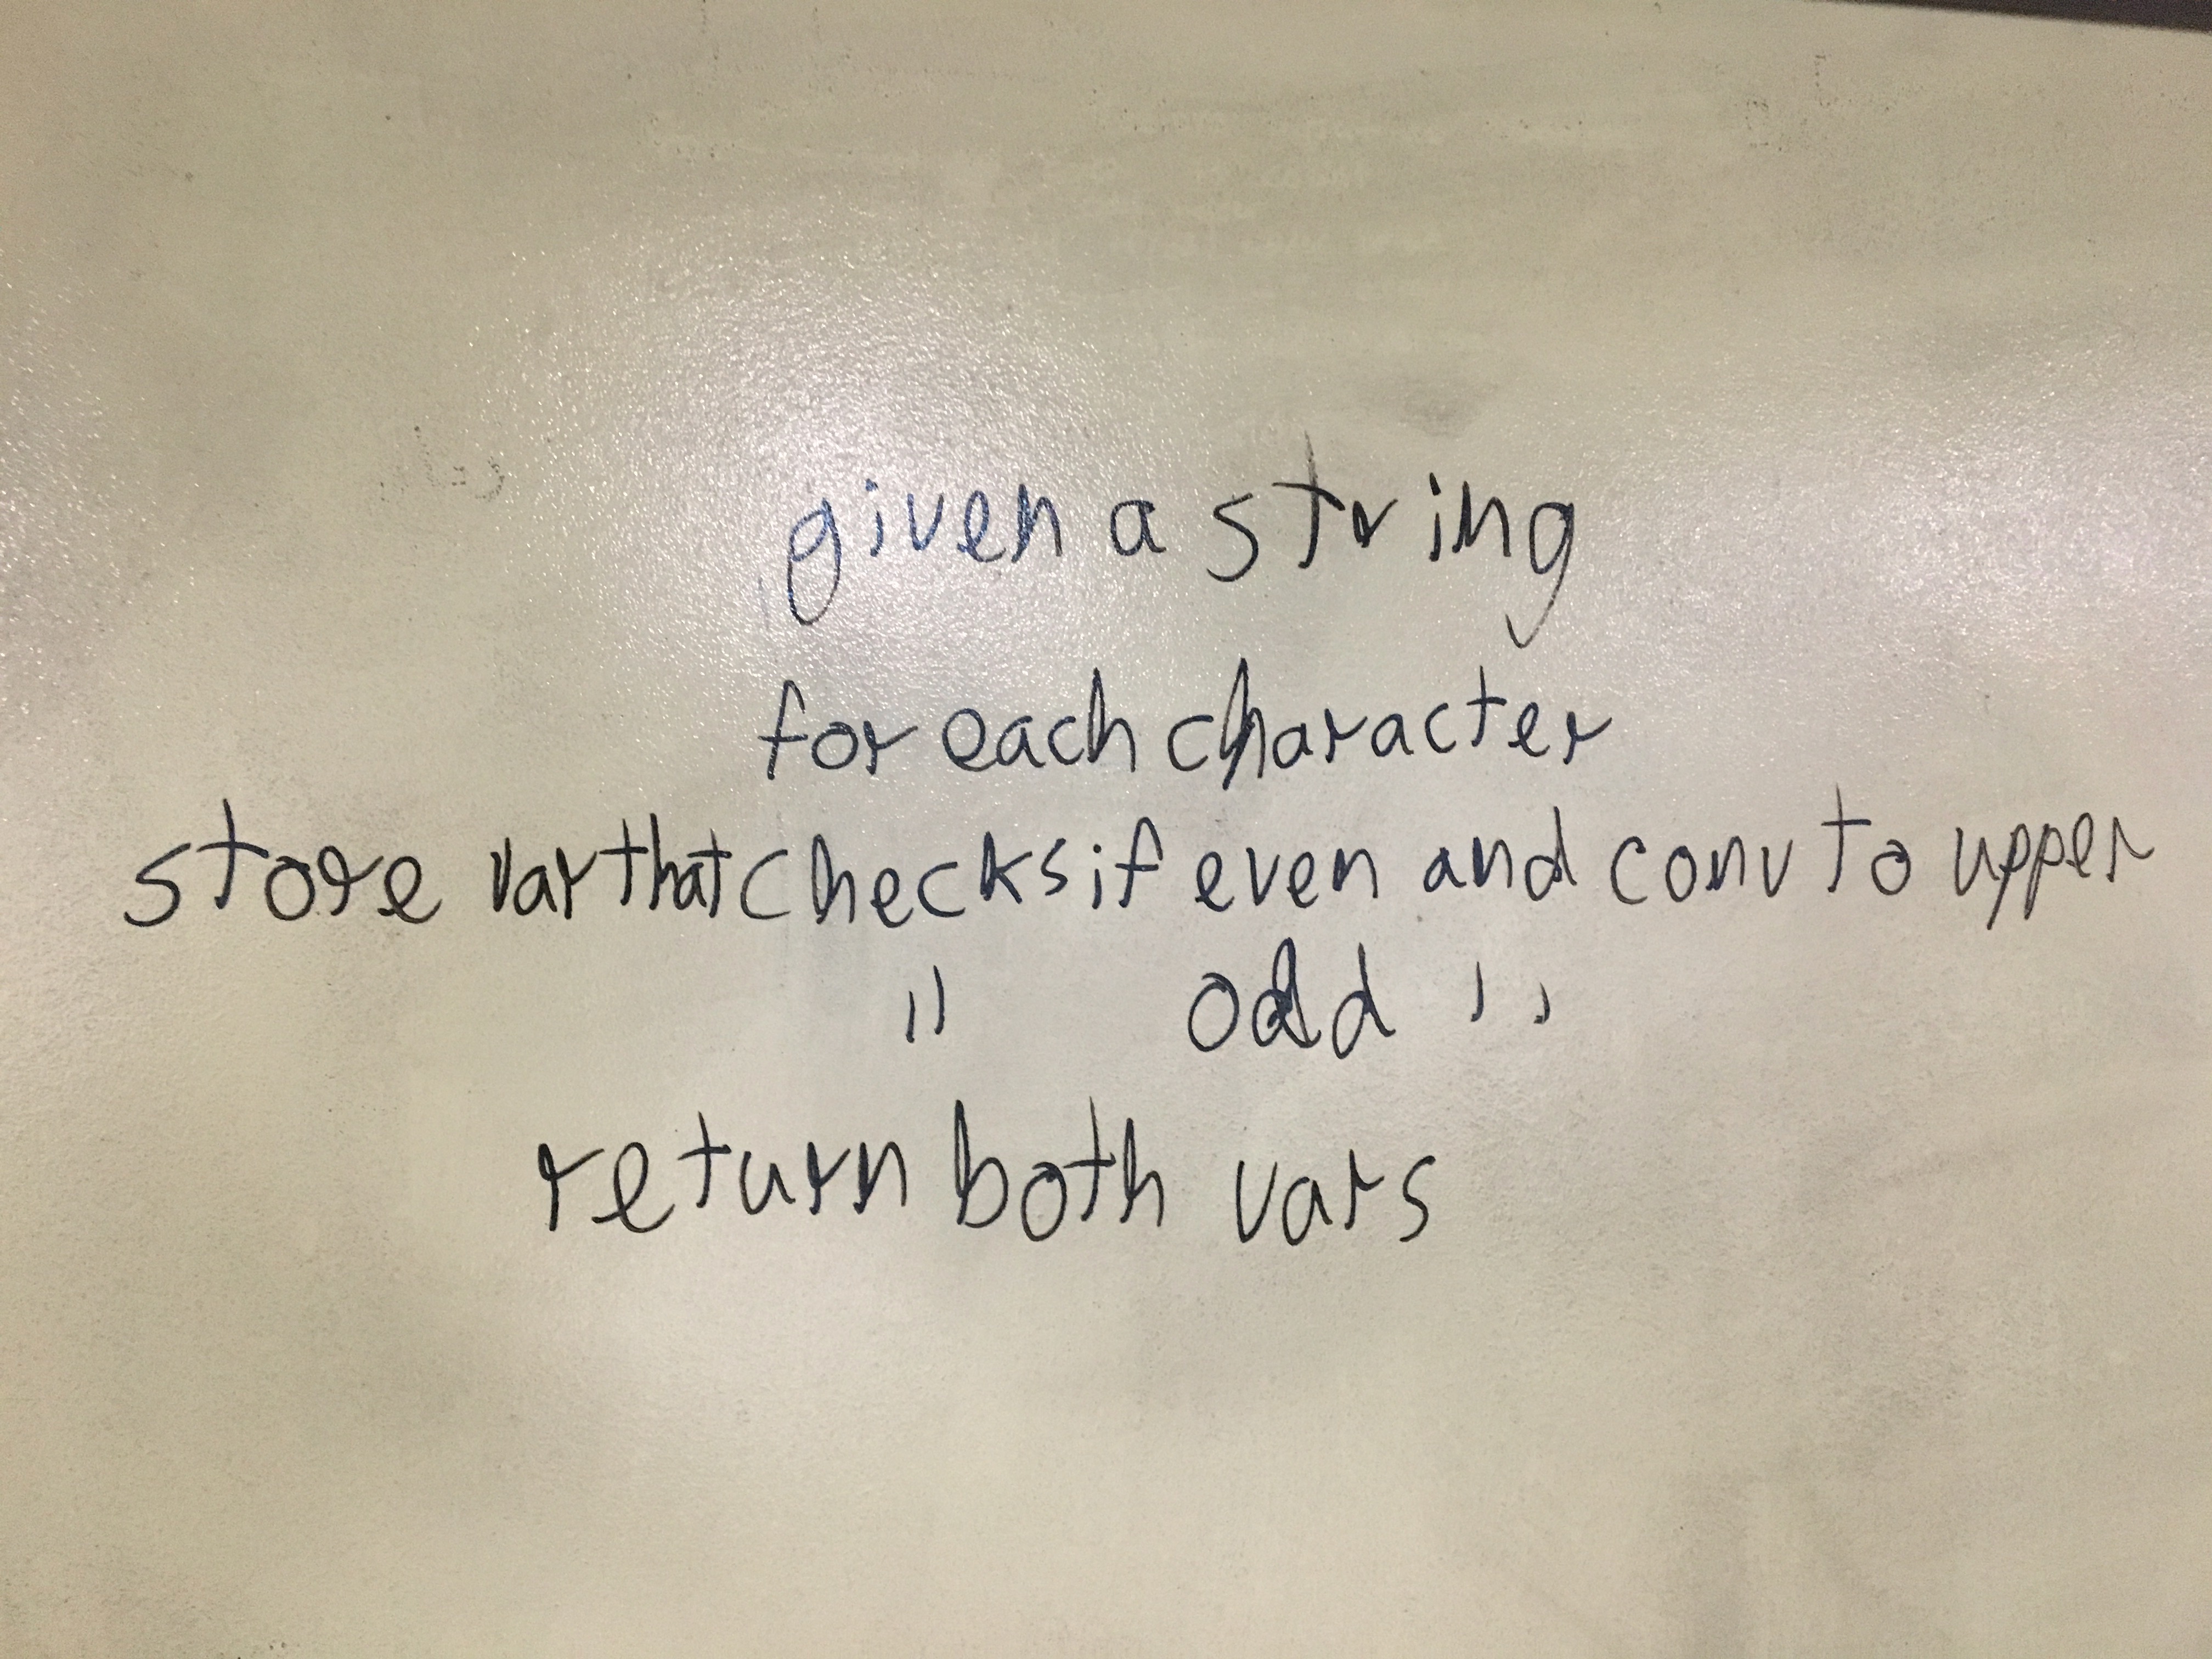 given a string
for each character
store var that checks if even and conv to upper
" odd "
return both vars